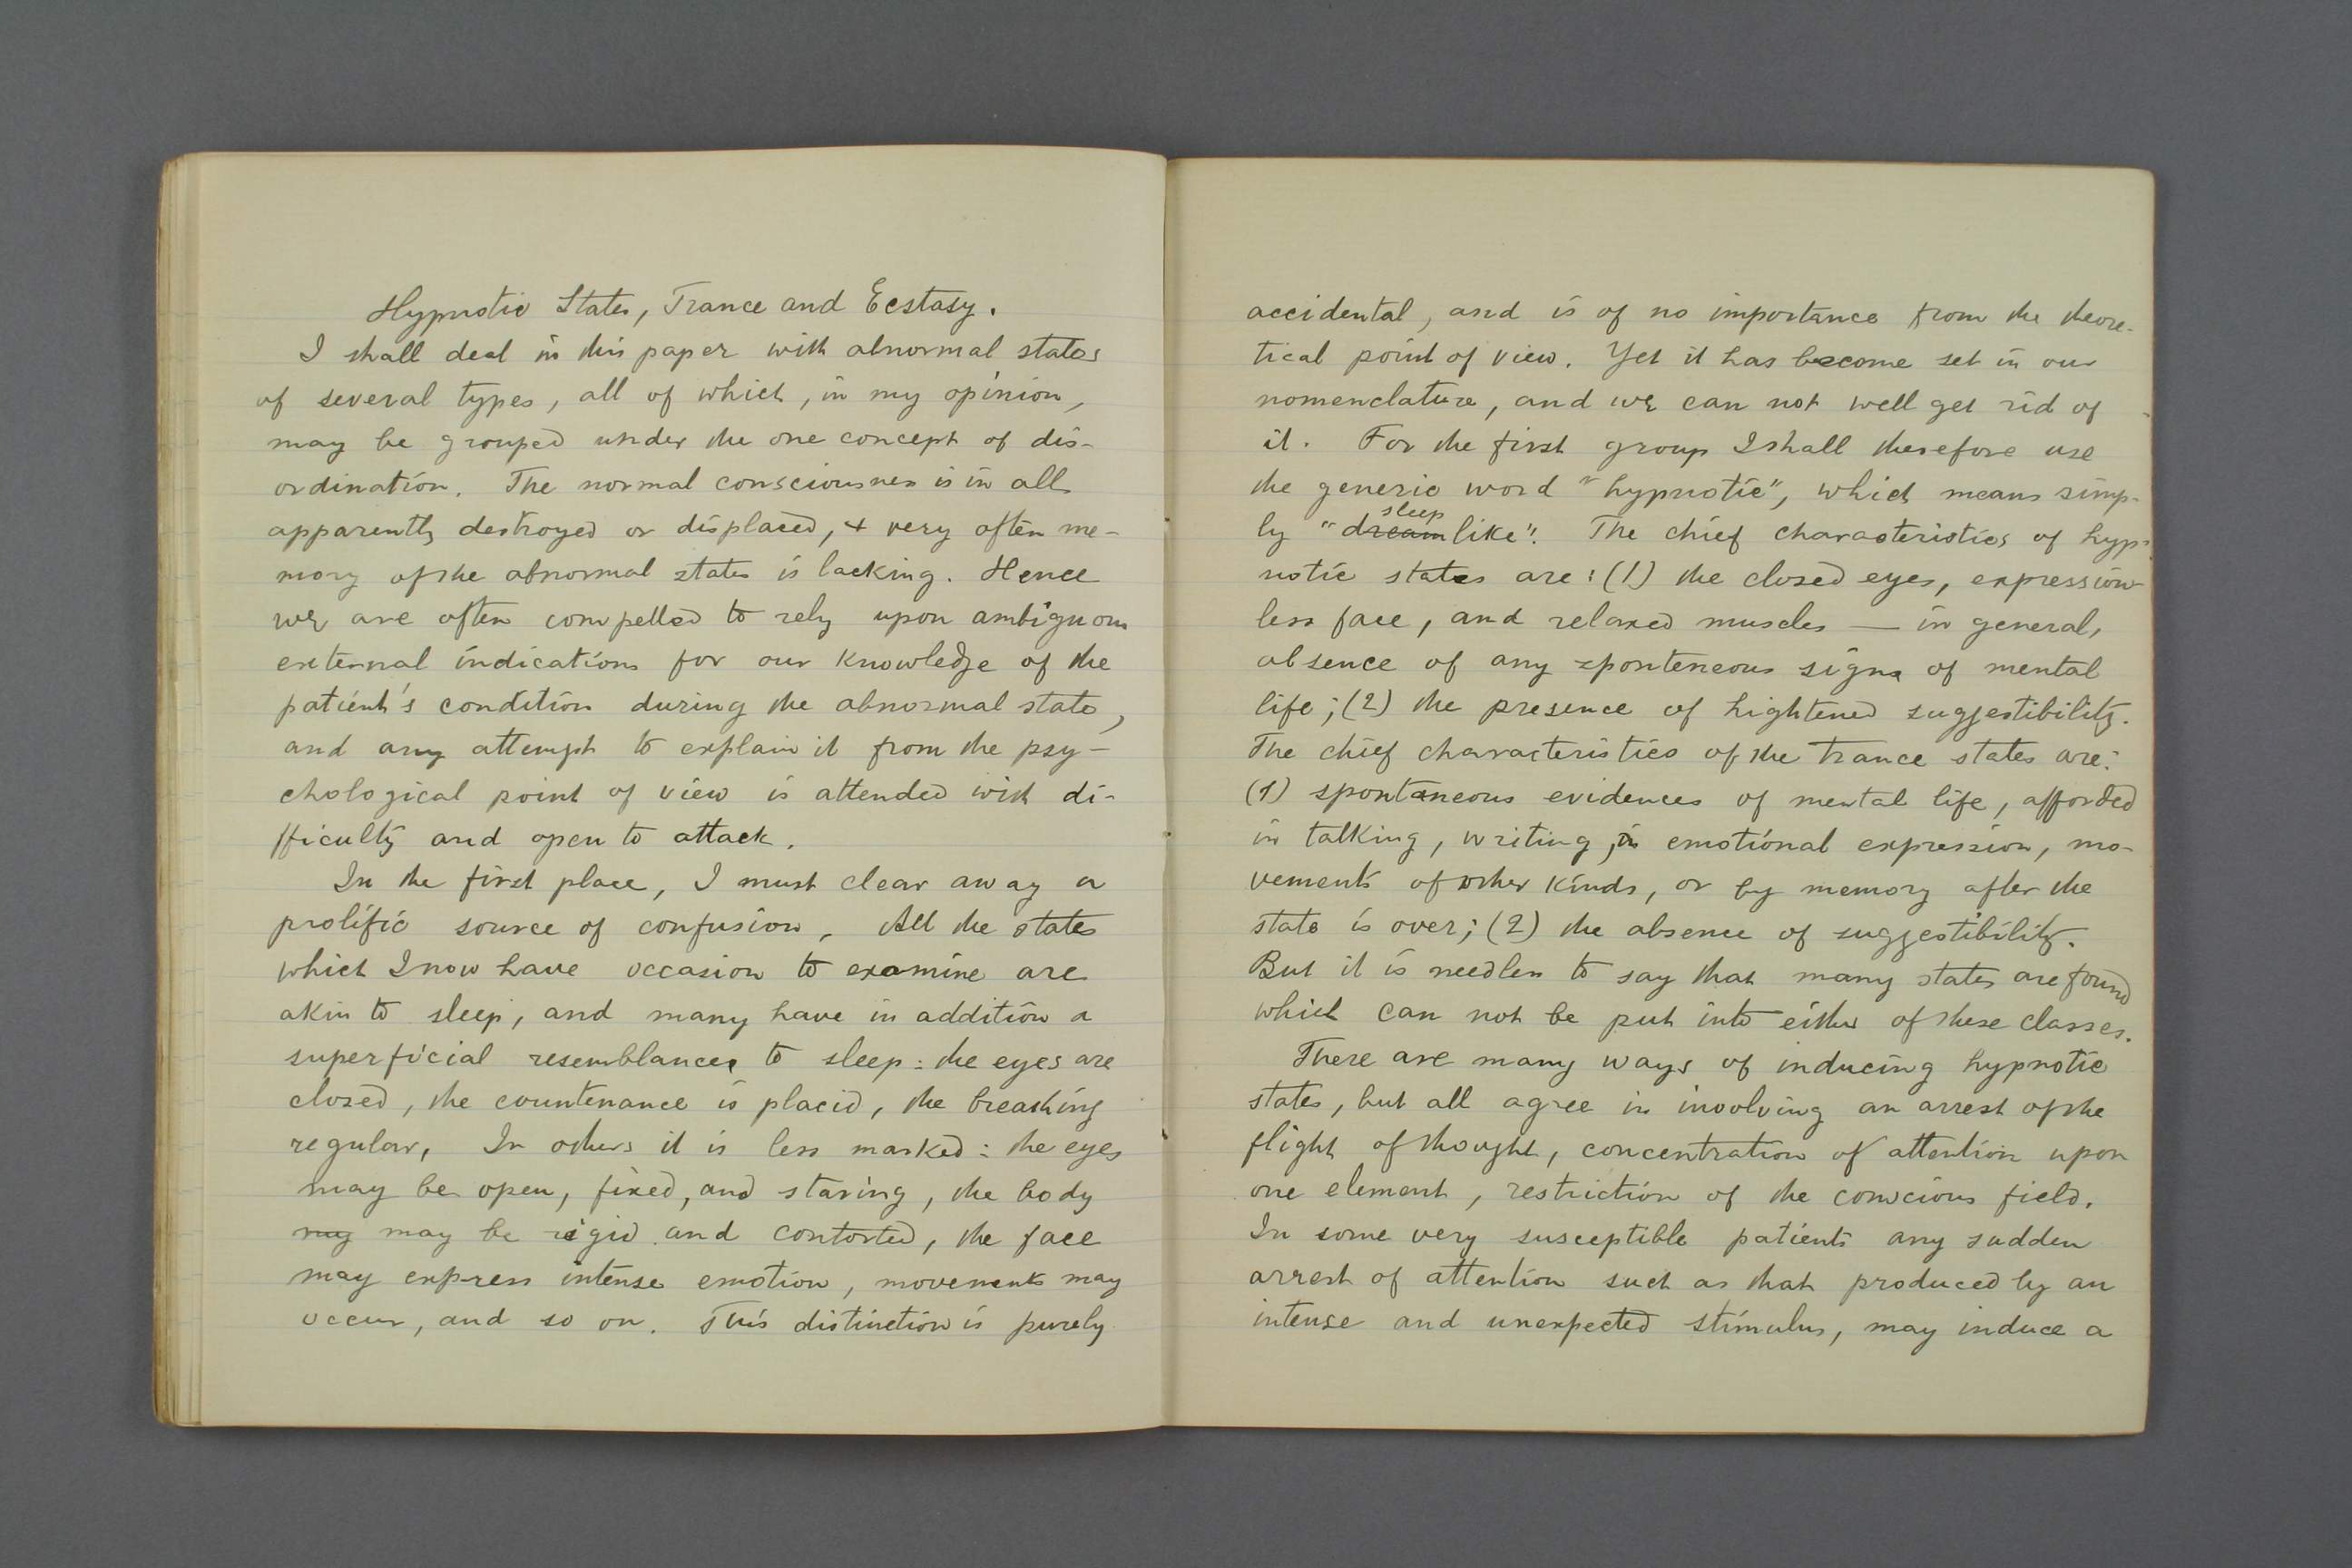 Hypnotic States, Trance and Ecstasy.
I shall deal in this paper with abnormal states
of several types, all of which, in my opinion,
may be grouped under the one concept of dis-
ordination. The normal consciousness is in all
apparently destroyed or displaced, & very often me-
mory of the abnormal state is lacking. Hence
we are often compelled to rely upon ambiguous
external indications for our knowledge of the
patient's condition during the abnormal state,
and any attempt to explain it from the psy-
chological point of view is attended with di-
fficulty and open to attack.
In the first place, I must clear away a
prolific source of confusion. All the states
which I now have occasion to examine are
akin to sleep, and many have in addition a
superficial resemblance to sleep: the eyes are
closed, the countenance is placid, the breathing
regular. In others it is less marked: the eyes
may be open, fixed, and staring, the body
may may be rigid and contorted, the face
may express intense emotion, movements may
occur, and so on. This distinction is purely
accidental, and is of no importance from the theore-
tical point of view. Yet it has become set in our
nomenclature, and we can not well get rid of
it. For the first group I shall therefore use
the generic word "hypnotic", which means simp-
sleep
ly "dreamlike". The chief characteristics of hyp-
notic states are: (1) the closed eyes, expression-
less face, and relaxed muscles — in general,
absence of any sponteneous signs of mental
life; (2) the presence of hightened suggestibility.
The chief characteristics of the trance states are:
(1) spontaneous evidences of mental life, afforded
in talking, writing, in emotional expression, mo-
vements of other kinds, or by memory after the
state is over; (2) the absence of suggestibility.
But it is needless to say that many states are found
which can not be put into either of these classes.
There are many ways of inducing hypnotic
states, but all agree in involving an arrest of the
flight of thought, concentration of attention upon
one element, restriction of the conscious field.
In some very susceptible patients any sudden
arrest of attention such as that produced by an
intense and unexpected stimulus, may induce a